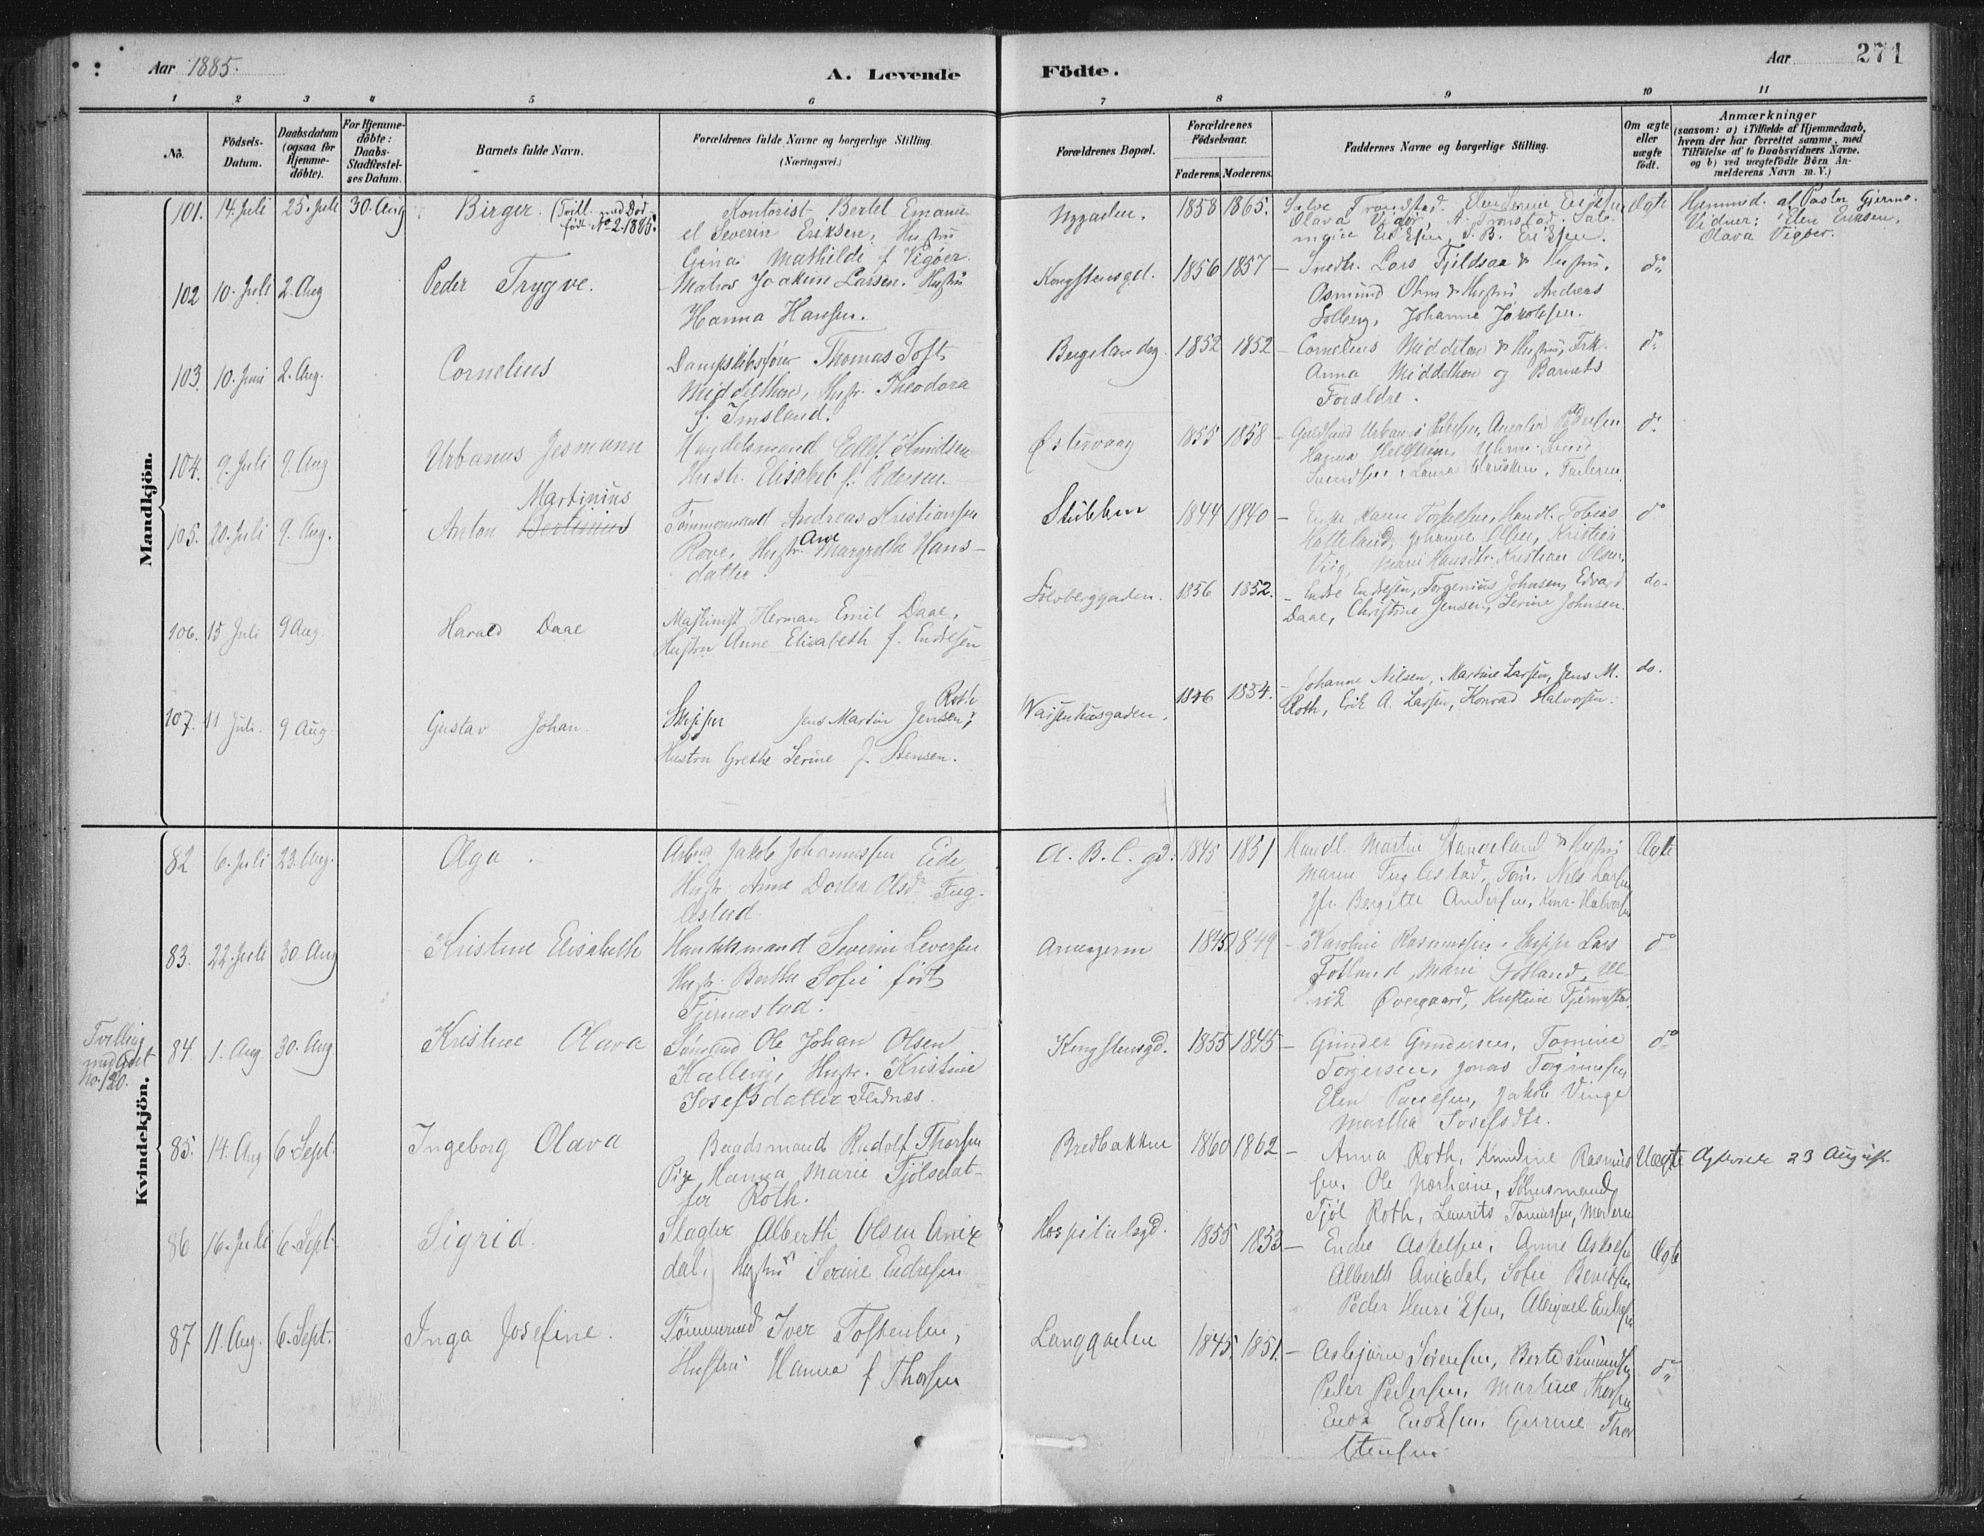 Aar 1885.
A. Levende Födte.
Aar 271
1 2 3 4 5 6 7 8 9 10 11
No.
Födsels-Datum.
Daabsdatum (ogsaa for Hjemme-döbte).
For Hjemme-döbte: Daabs-Stadfæstel-ses Datum.
Barnets fulde Navn.
Forældrenes fulde Navne og borgerlige Stilling. (Næringsvei.)
Forældrenes Bopæl.
Forældrenes Födselsaar.
Faderens. Moderens.
Faddernes Navne og borgerlige Stilling.
Om ægte eller uægte födt.
Anmærkninger
(saasom: a) i Tilfælde af Hjemmedaab, hvem der har forrettet samme, med Tilföielse af to Daabsvidners Navne, og b) ved uægtefödte Börn An-melderens Navn m. V.)
Mandkjön.
101. 14. Juli 25. Juli 30. Aug Birger. (Tvill. med Död-födt No 2. 1885.
Kontorist Bertel Emanu-
el Severin Eriksen, Hustru
Gina Mathilde f Vigöer.
Nygaden. 1858 1865.
Olava Vigör,
Ægte
Hjemmed. af Pastor Gjerme.
Vidner: Elen Eriksen,
Olava Vigöer.
102 10. Juli 2. Aug Peder Trygve.
Matros Joakim Larsen. Hustrü
Hanna Hansen.
Kongstensgd. 1856 1857
– Snedk. Lars Tjeldsaa & Hustrü,
Osmund Ohm & Hustrü Andreas
Solberg, Johanne Jakobsen.
do
103. 10. Juni 2. Aug. Cornelius
Dampskibsförer Thomas Toft
Middelthon, Hustr. Theodora
f. Imsland.
Bergelandsg. 1852 1852
– Cornelius Middelthon & Hustrü, Frk.
Anna Middelthon og Barnets
Forældre.
do
104. 9. Juli 9. Aug Urbanus Jesmann
Handelsmand Ellef Knudsen
Hustr. Elisabet f. Pedersen.
Østervaag 1855 1858
do
105. 20. Juli 9. Aug. Anton Martinius
Tömmermand Andreas Kristiansen
Rove, Hustr. Ane Margrethe Hans-
datter.
Stübben 1844 1840
– Enke Karen Torkelsen, Handl. Tobias
Hatteland, Johanne Olsen, Kristian
Vig, Marie Hansdtr. Kristian Olsen.
do
106. 15 Juli 9 Aug. Harald Daae
Maskinist Herman Emil Daae,
Hustru Anne Elisabeth f. Endresen
Sölvberggaden. 1856 1852.
– Endre Endresen, Torgenius Johnsen, Edvard
Daae, Christine Jensen, Serine Johnsen.
do.
107. 11 Juli. 9 Aug. Gustav Johan.
Skipper Jens Martin Jensen Roth,
Hustru Grethe Serine f. Stensen.
Waisenhusgaden. 1846 1854.
– Johanne Nilsen, Martine Larsen, Jens M.
Roth, Erik A. Larsen, Konrad Halvorsen.
do.
Kvindekjön.
82 6. Juli 23. Aug. Olga.
Arbeid Jakob Johannessen Eide
Hustr. Anne Dortea Olsdr Fug-
lestad.
A. B. C. gd. 1845 1851
Handl. Martin Stangeland & Hustrü
Maren Fuglestad, Töm. Nils Larsen
Jfr. Bergitte Andersen, Konr. Halvorsen
Ægte
83. 22. Juli 30. Aug Kristine Elisabeth
Handelsmand Severin Seversen
Hustr. Berthe Sofie född
Tjernestad.
1845 1849
– Karoline Rasmussen, Skipp. Lars
Fotland, Marie Fotland,
Øvergaard, Kristine Tjernestad.
do
Tvilling
med Gutt
No. 120.
84. 1. Aug. 30. Aug Kristine Olava
Sömand Ole Johan Olsen
Hallevig, Hustr. Kristine
Josefsdatter
Kongstensgd. 1855 1845
– Gunder Gundersen, Tomine
Torgersen, Jonas Torgersen
Elen Paulsen, Jakob Vinge
Martha Josefsdtr.
do
85. 14. Aug 6. Sept. Ingeborg Olava
Baadsmand Rudolf Thorsen
Pige Hanna Marie Tjölsdat-
ter Roth.
Bredbakken 1860 1862
– Anna Roth, Knudine Rasmus-
sen, Ole Nærheim, Sömand
Tjöl Roth, Laurits Tönnessen, Moderen
Uægte
23 August.
86 16. Juli 6. Sept. Sigrid.
Slagter Alberth Olsen Anix
dal, Hustrü Serine Endresen
Hospitalsgd. 1855 1853
– Endre Askelsen, Anne Askelsen
Alberth Anixdal, Sofie
Peder Henriksen, Abigael Endresen
Ægte
87 11. Aug. 6. Sept. Inga Josefine.
Tömmermd Iver Tostensen,
Hustrü Hanna f Thorsen
Langgaden 1845. 1851.
– Asbjörn Sörensen, Berte
Peder Pedersen, Martine Thorsen
Enok Enoksen, Gurine Thor-
stensen.
do